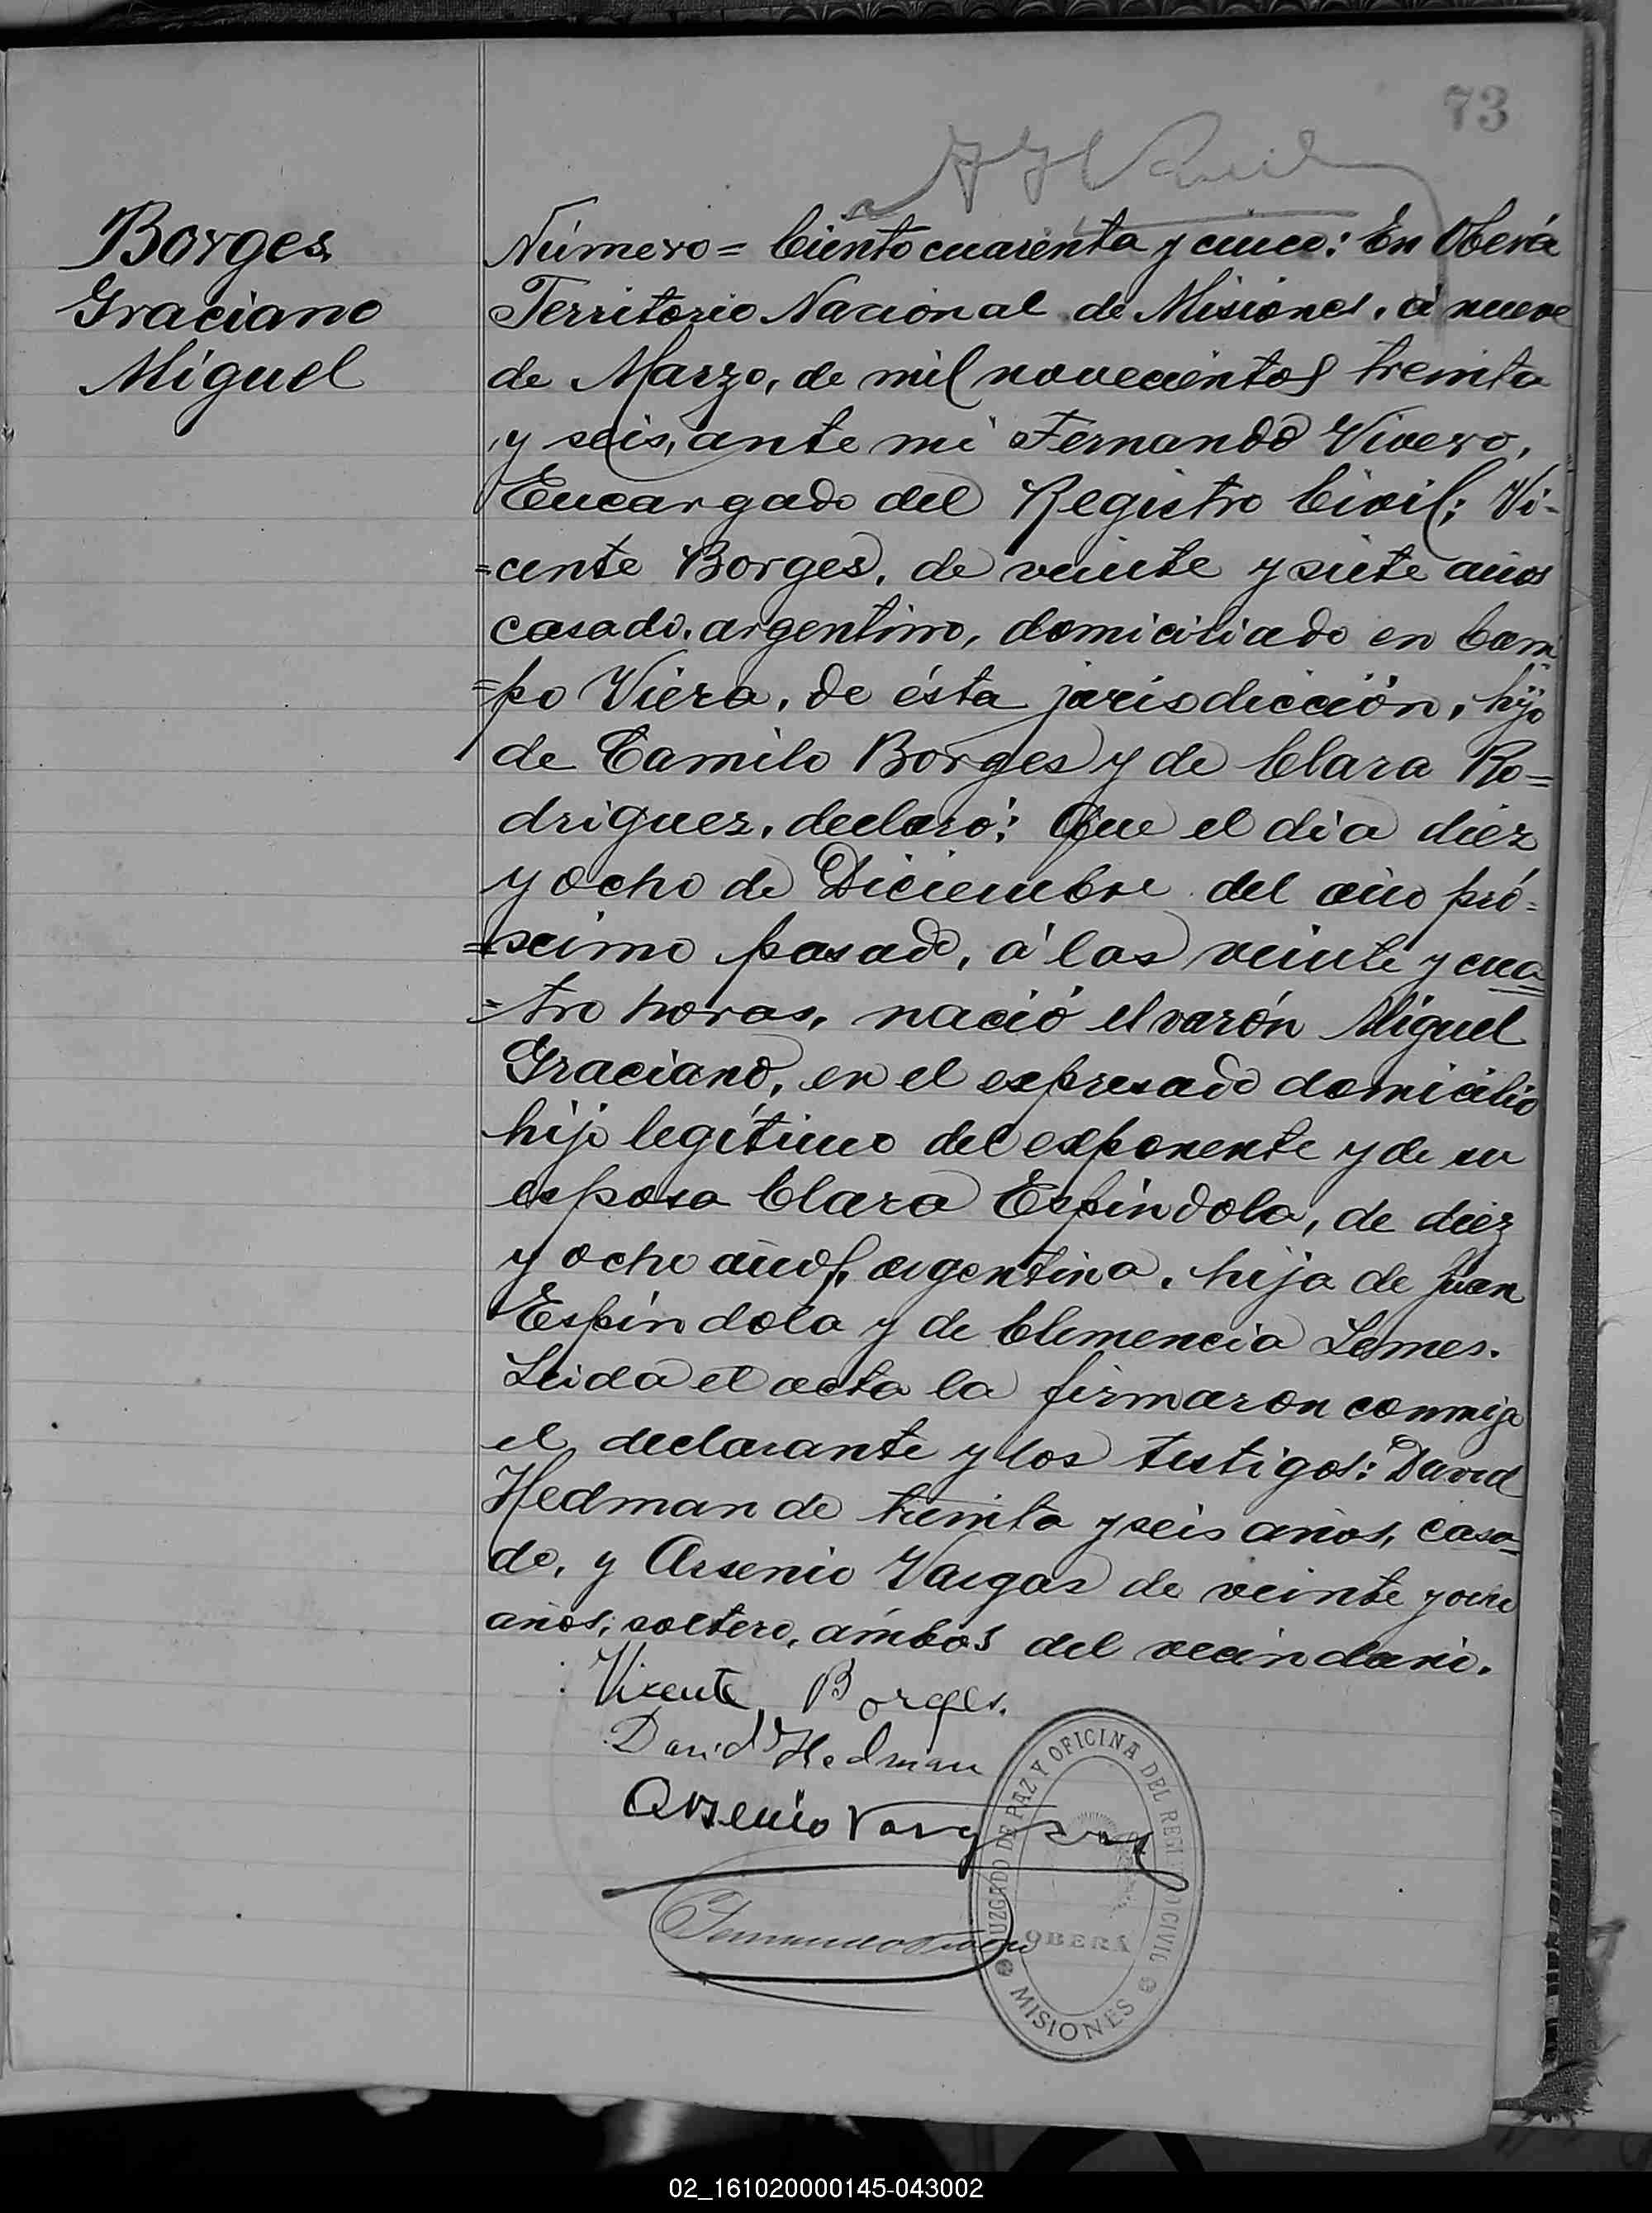 73
Borges
Graciano
Miguel
Número = Ciento cuarenta y cinco: En Oberá
Territorio Nacional de Misiones, á nueve
de Marzo, de mil novecientos treinta
y seis, ante mi Fernando Vivero,
Encargado del Registro Civil; Vi-
=cente Borges, de veinte y siete años
casado, argentino, domiciliado en Cam
=po Viera, de ésta jurisdicción, hijo
de Camilo Borges y de Clara Ro=
driguez, declaró: Que el dia diez
y ocho de Diciembre del año pró=
=ximo pasado, á las veinte y cua
=tro horas, nació el varón Miguel
Graciano, en el expresado domicilio
hijo legítimo del exponente y de su
esposa Clara Espíndola, de diez
y ocho años, argentina, hija de Juan
Espíndola y de Clemencia Lemes.
Leida el acta la firmaron conmigo
el declarante y los testigos: David
Hedman de treinta y seis años, casa=
do, y Arsenio Vargas de veinte y ocho
años, soltero, ámbos del vecindario.
Vicente Borges.
David Hedman
Arsenio Vargas
Fernando Vivero
JUZGADO DE PAZ Y OFICINA DEL REGISTRO CIVIL
OBERÁ
MISIONES
02_161020000145-043002